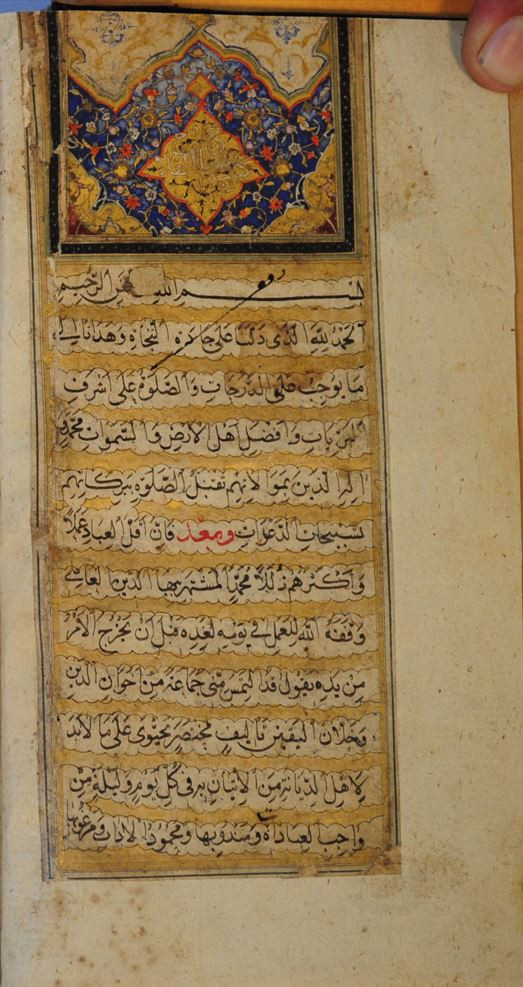 بسم الله الرحمن الرحيم
الحمد لله الذى دلنا على جادة النجاة وهدانا الى
ما يوجب علو الدرجات والصلوة على اشرف
البريات وافضل اهل الارض والسموات محمد و
اله الذين بموالاتهم تقبل الصلوة ببركاتهم
تستجاب الدعوات وبعد فان اقل العباد عملا
واكثرهم زللا محمد المشتهر ببهاء الدين العاملى
وفقه الله للعمل فى يومه لغده قبل ان يخرج الامر
من يده يقول قد التمس منى جماعة من اخوان الدين
وخلان اليقين تاليف مختصر يحتوى على ما لابد
لاهل الديانة من الاتيان به فى كل يوم وليلة من
واجب العبادة ومندوبها ومحمود الاداب ومرغوبها